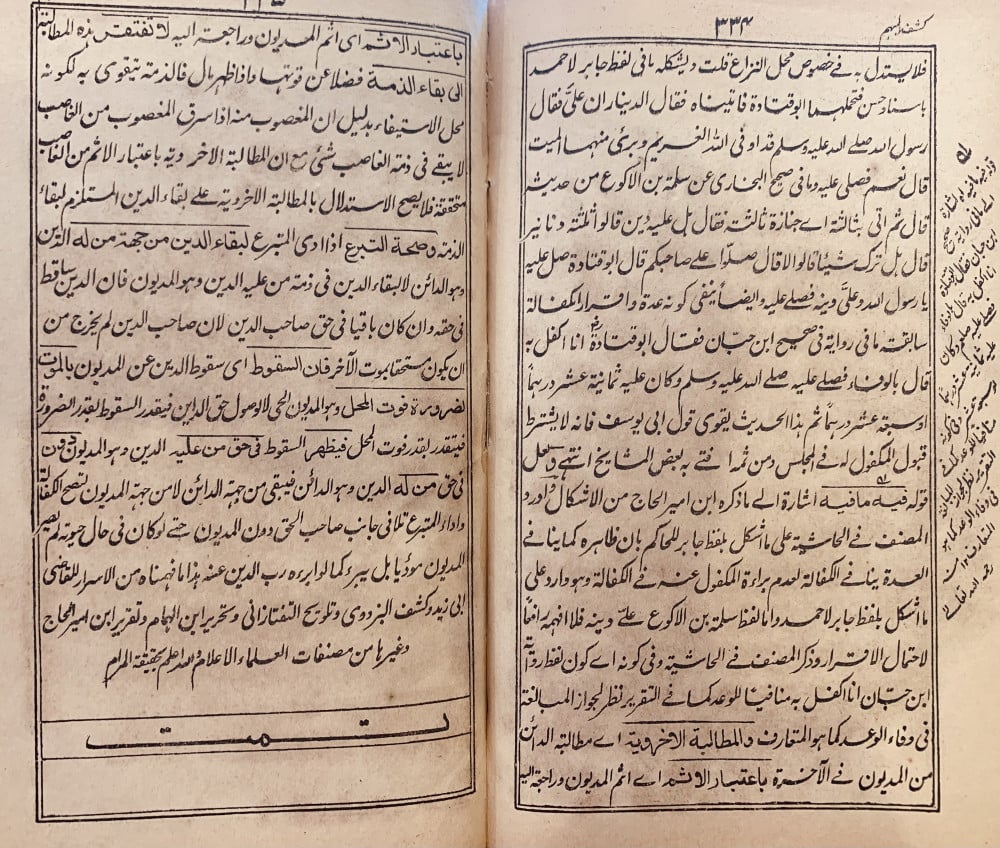 كشف المبهم
٣٣٤
فلا يستدل به فى خصوص محل النزاع قلت ويشكله ما فى لفظ جابر لاحمد
باسناد حسن فتحملهما ابو قتادة فاتيناه فقال الديناران علىّ فقال
رسول الله صلے الله عليه وسلم قد اوفى الله الغريم وبرئ منهما الميت
قال نعم فصلى عليه وما فى صحيح البخارى عن سلمة بن الاكوع من حديثه
قال ثم اتى بثالثة اے جنازة ثالثة فقال هل عليه دين قالوا ثلثة دنانير
قال هل ترك شيئا قالوا لا قال صلوا علے صاحبكم قال ابو قتادة صل عليه
يا رسول الله وعلىّ دينه فصلے عليه وايضاً ينفى كونه عدة واقرار الكفالة
سابقته ما فى رواية فى صحيح ابن حبّان فقال ابو قتادة انا اكفل به
قال بالوفاء فصلے عليه صلے الله عليه وسلم وكان عليه ثمانية عشر درهماً
او سبعة عشر درهماً ثم هذا الحديث يقوى قول ابى يوسف فانه لا يشترط
قبول المكفول له فى المجلس ومن ثمه افتے به بعض المشايخ انتهے ولعل
قوله فيه مافيه اشارة الے ما ذكره ابن امير الحاج من الاشكال واورد
المصنف فے الحاشية على ما اشكل بلفظ جابر للحاكم بان ظاهره كما ينافے
العدة ينافے الكفالة لعدم براءة المكفول عنه فے الكفالة وهو وارد على
ما اشكل بلفظ جابر لاحمد واما لفظ سلمة بن الاكوع علىّ دينه فلا افهمه رافعاً
لاحتمال الاقرار وذكر المصنف فے الحاشية وفى كونه اے كون لفظ رواية
ابن حبّان انا اكفل به منافياً للوعد كما فے التقرير نظر لجواز المبالغة
فى وفاء الوعد كما هو المتعارف والمطالبة الاخروية اے مطالبة الدائن
من المديون فے الآخرة باعتبار الاثم اے اثم المديون وراجعة اليه
رحمه الله تعالے
٣٣٥
باعتبار الاثم اى اثم المديون وراجعة اليه لا تفتقر هذه المطالبة
الى بقاء الذمة فضلا عن قوتها واذا ظهر مال فالذمة تتقوى به لكونه
محل الاستيفاء بدليل ان المغصوب منه اذا سرق المغصوب من الغاصب
لا يبقے فى ذمة الغاصب شئ مع ان المطالبة الاخروية باعتبار الاثم من الغاصب
متحققة فلا يصح الاستدلال بالمطالبة الاخروية علے بقاء الدين المستلزم لبقاء
الذمة وصحة التبرع اذا ادى المتبرع لبقاء الدين من جهة من له الدين
وهو الدائن لا لبقاء الدين فى ذمة من عليه الدين وهو المديون فان الدين ساقط
فى حقه وان كان باقيا فى حق صاحب الدين لان صاحب الدين لم يخرج من
ان يكون مستحقا بموت الآخر فان السقوط اى سقوط الدين عن المديون بالموت
لضرورة فوت المحل وهو المديون الحى لا لوصول حق الداين فيقدر السقوط بقدر الضرورة
فيتقدر بقدر فوت المحل فيظهر السقوط فى حق من عليه الدين وهو المديون دون
فى حق من له الدين وهو الدائن فيبقے من جهة الدائن لا من جهة المديون تصح الكفالة
واداء المتبرع تلافى جانب صاحب الحق دون المديون حتے لو كان فى حال حيوته لم يصر
المديون مؤديا بل يبرء كما لو ابرءه رب الدين عنه هذا ما فهمناه من الاسرار للقاضى
ابى زيد وكشف البزدوى وتلويح التفتازانى وتحرير ابن الهمام وتقرير ابن امير الحاج
وغيرها من مصنفات العلماء الاعلام والله اعلم بحقيقة المرام
تمت